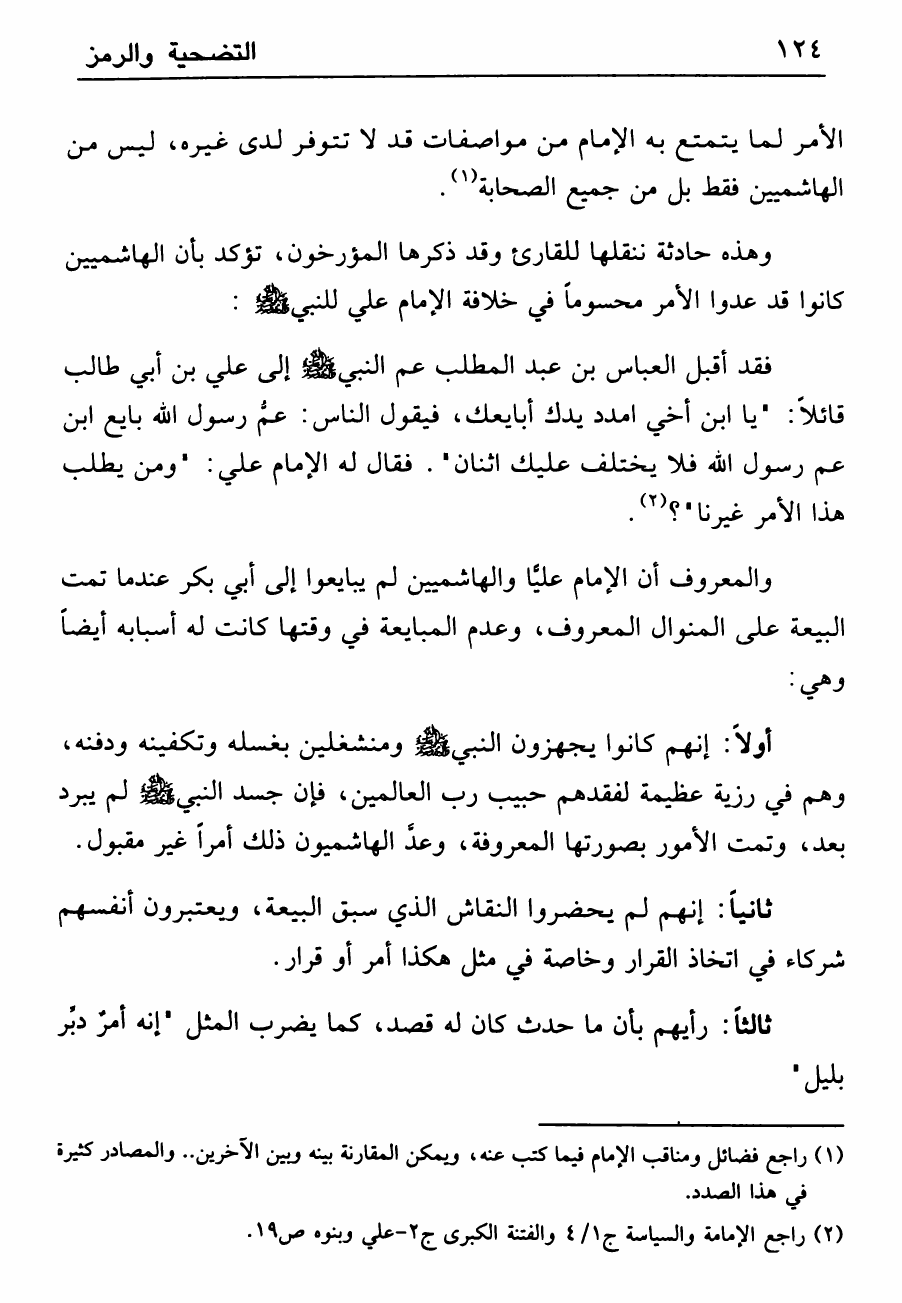 ١٢٤ التضحية والرمز
الأمر لما يتمتع به الإمام من مواصفات قد لا تتوفر لدى غيره، ليس من
الهاشميين فقط بل من جميع الصحابة(١).
وهذه حادثة ننقلها للقارئ وقد ذكرها المؤرخون، تؤكد بأن الهاشميين
كانوا قد عدوا الأمر محسوماً في خلافة الإمام علي للنبيﷺ :
فقد أقبل العباس بن عبد المطلب عم النبيﷺ إلى علي بن أبي طالب
قائلاً: "يا ابن أخي امدد يدك أبايعك، فيقول الناس: عمُّ رسول الله بايع ابن
عم رسول الله فلا يختلف عليك اثنان". فقال له الإمام علي: "ومن يطلب
هذا الأمر غيرنا"؟(٢).
والمعروف أن الإمام عليًّا والهاشميين لم يبايعوا إلى أبي بكر عندما تمت
البيعة على المنوال المعروف، وعدم المبايعة في وقتها كانت له أسبابه أيضاً
وهي:
أولاً: إنهم كانوا يجهزون النبيﷺ ومنشغلين بغسله وتكفينه ودفنه،
وهم في رزية عظيمة لفقدهم حبيب رب العالمين، فإن جسد النبيﷺ لم يبرد
بعد، وتمت الأمور بصورتها المعروفة، وعدَّ الهاشميون ذلك أمراً غير مقبول.
ثانياً: إنهم لم يحضروا النقاش الذي سبق البيعة، ويعتبرون أنفسهم
شركاء في اتخاذ القرار وخاصة في مثل هكذا أمر أو قرار.
ثالثاً: رأيهم بأن ما حدث كان له قصد، كما يضرب المثل "إنه أمرٌ دبِّر
بليل"
(١) راجع فضائل ومناقب الإمام فيما كتب عنه، ويمكن المقارنة بينه وبين الآخرين.. والمصادر كثيرة
في هذا الصدد.
(٢) راجع الإمامة والسياسة ج١/ ٤ والفتنة الكبرى ج٢-علي وبنوه ص١٩.